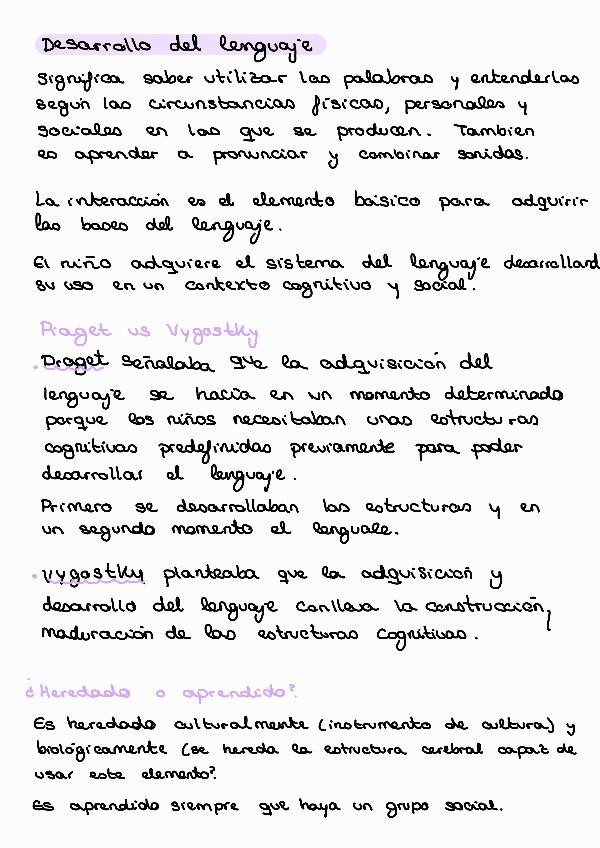 Desarrollo del lenguaje
Significa saber utilizar las palabras y entenderlas
según las circunstancias físicas, personales y
sociales en las que se producen. Tambien
es aprender a pronunciar y combinar sonidos.
La interacción es el elemento básico para adquirir
las bases del lenguaje.
El niño adquiere el sistema del lenguaje desarrolland
su uso en un contexto cognitivo y social.
Piaget vs Vygostky
. Piaget señalaba que la adquisición del
lenguaje se hacía en un momento determinado
porque los niños necesitaban unas estructuras
cognitivas predefinidas previamente para poder
desarrollar el lenguaje.
Primero se desarrollaban las estructuras y en
un segundo momento el lenguale.
. Vygostky planteaba que la adquisición y
desarrollo del lenguaje conlleva la construcción,
maduración de las estructuras cognitivas.
¿Heredado o aprendido?
Es heredado culturalmente (instrumento de cultura) y
biológicamente (se hereda la estructura cerebral capaz de
usar este elemento?
Es aprendido siempre que haya un grupo social.